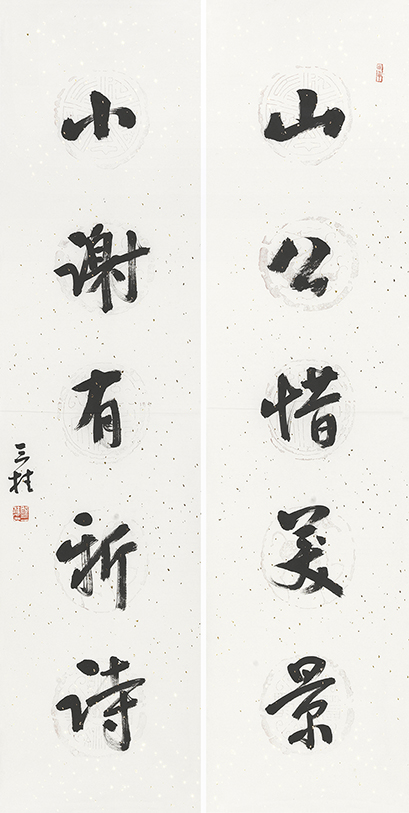 山公惜美景
小谢有新诗
三桂